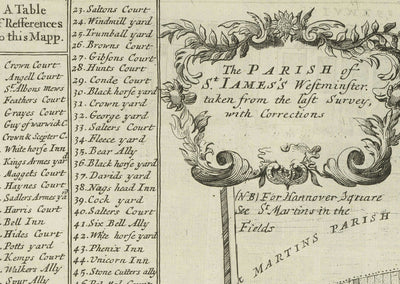 A Table
of Refferences
to this Mapp.
Crown Court
Angell Court
St. Albons mews
Feathers Court
Grayes Court
Guy of warwick C.
Crown & Scepter C.
White horse Inn.
Kings Armes yad
Maggots Court
Haynes Court
Sadlers Armes yad
Harris Court
Bell Inn
Hides Court
Potts yard
Kemps Court
Walkers Ally
Spur Ally
23. Saltons Court
24. Windmill yard
25. Trumball yard
26. Browns Court
27. Gibsons Court
28. Hunts Court
29. Conde Court
30. Black horse yard
31. Crown yard
32. George yard
33. Salters Court
34. Fleece yard
35. Bear Ally
36. Black horse yard
37. Davids yard
38. Nags head Inn
39. Cock yard
40. Salters Court
41. Six Bell Ally
42. White horse yard
43. Phenix Inn
44. Unicorn Inn
45. Stone Cutters ally
The PARISH of
St. IAMES's Westminster.
taken from the last Survey,
with Corrections
(N:B) For Hannover Square
See St. Martins in the
Fields
MARTINS PARISH